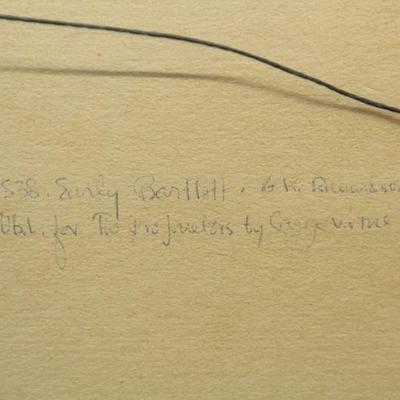 538. Early Bartlett. G.K. Richardson
Publ. for The Proprietors by George Virtue